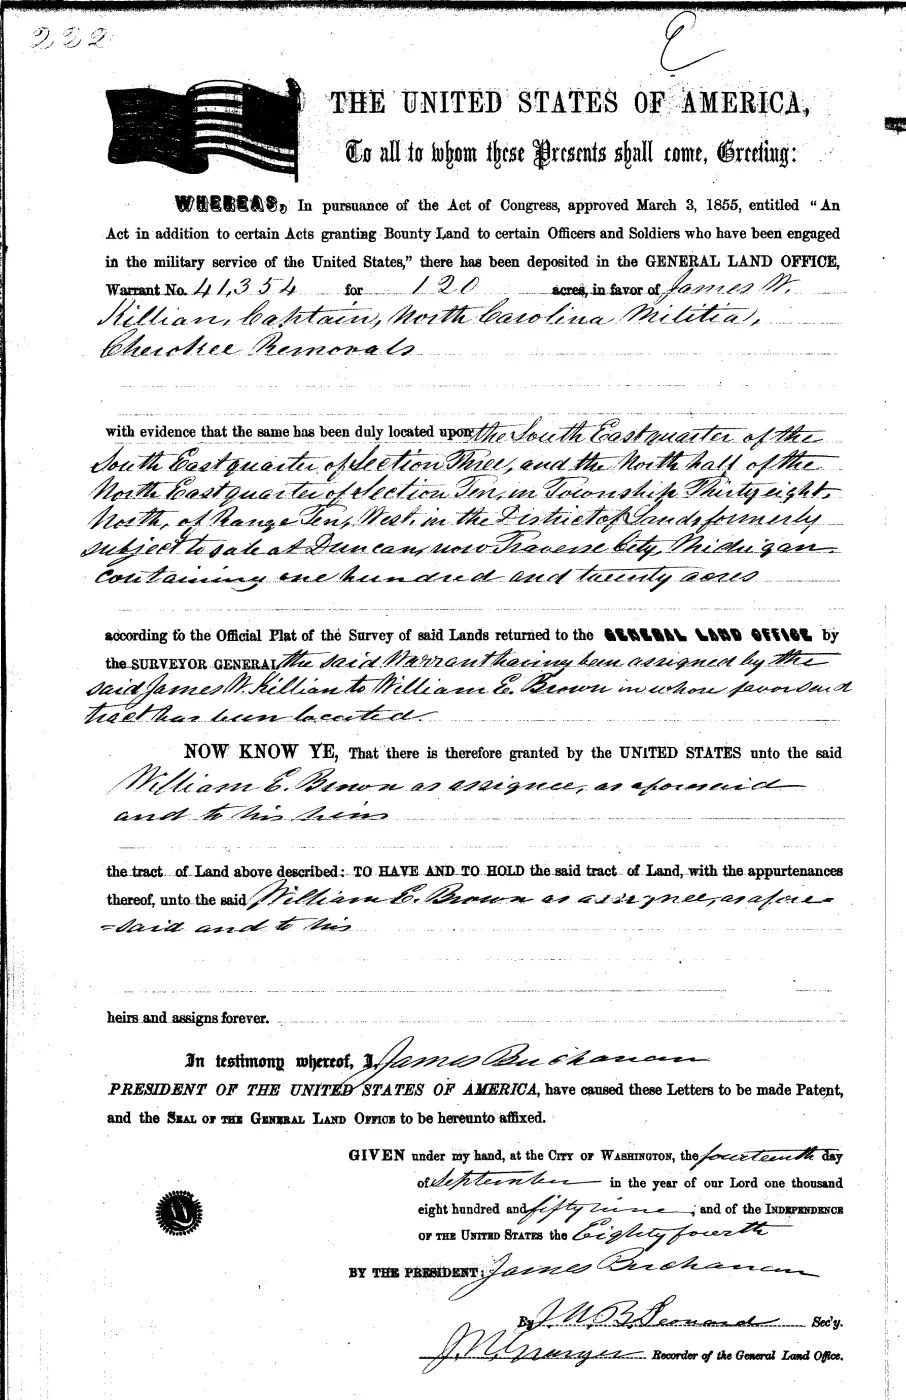 222
THE UNITED STATES OF AMERICA,
To all to whom these Presents shall come, Greeting:
WHEREAS, In pursuance of the Act of Congress, approved March 3, 1855, entitled "An
Act in addition to certain Acts granting Bounty Land to certain Officers and Soldiers who have been engaged
in the military service of the United States," there has been deposited in the GENERAL LAND OFFICE,
Warrant No. 41,354 for 120 acres, in favor of James W.
Killian, Captain, North Carolina Militia,
Cherokee Removals
with evidence that the same has been duly located upon the South East quarter of the
South East quarter of Section Three, and the North half of the
North East quarter of Section Ten, in Township Thirty eight,
North, of Range Ten, West, in the District of Lands formerly
subject to sale at Duncan, now Traverse City, Michigan
containing one hundred and twenty acres
according to the Official Plat of the Survey of said Lands returned to the GENERAL LAND OFFICE by
the SURVEYOR GENERAL the said Warrant having been assigned by the
said James W. Killian to William E. Brown in whose favor said
tract has been located.
NOW KNOW YE, That there is therefore granted by the UNITED STATES unto the said
William E. Brown as assignee, as aforesaid
and to his heirs
the tract of Land above described: TO HAVE AND TO HOLD the said tract of Land, with the appurtenances
thereof, unto the said William E. Brown as assignee, as afore=
=said and to his
heirs and assigns forever.
In testimony whereof, I, James Buchanan
PRESIDENT OF THE UNITED STATES OF AMERICA, have caused these Letters to be made Patent,
and the SEAL OF THE GENERAL LAND OFFICE to be hereunto affixed.
GIVEN under my hand, at the CITY OF WASHINGTON, the fourteenth day
of September in the year of our Lord one thousand
eight hundred and fifty nine, and of the INDEPENDENCE
OF THE UNITED STATES the Eighty fourth
BY THE PRESIDENT: James Buchanan
By J. B. Leonard Sec'y.
J. N. Granger Recorder of the General Land Office.